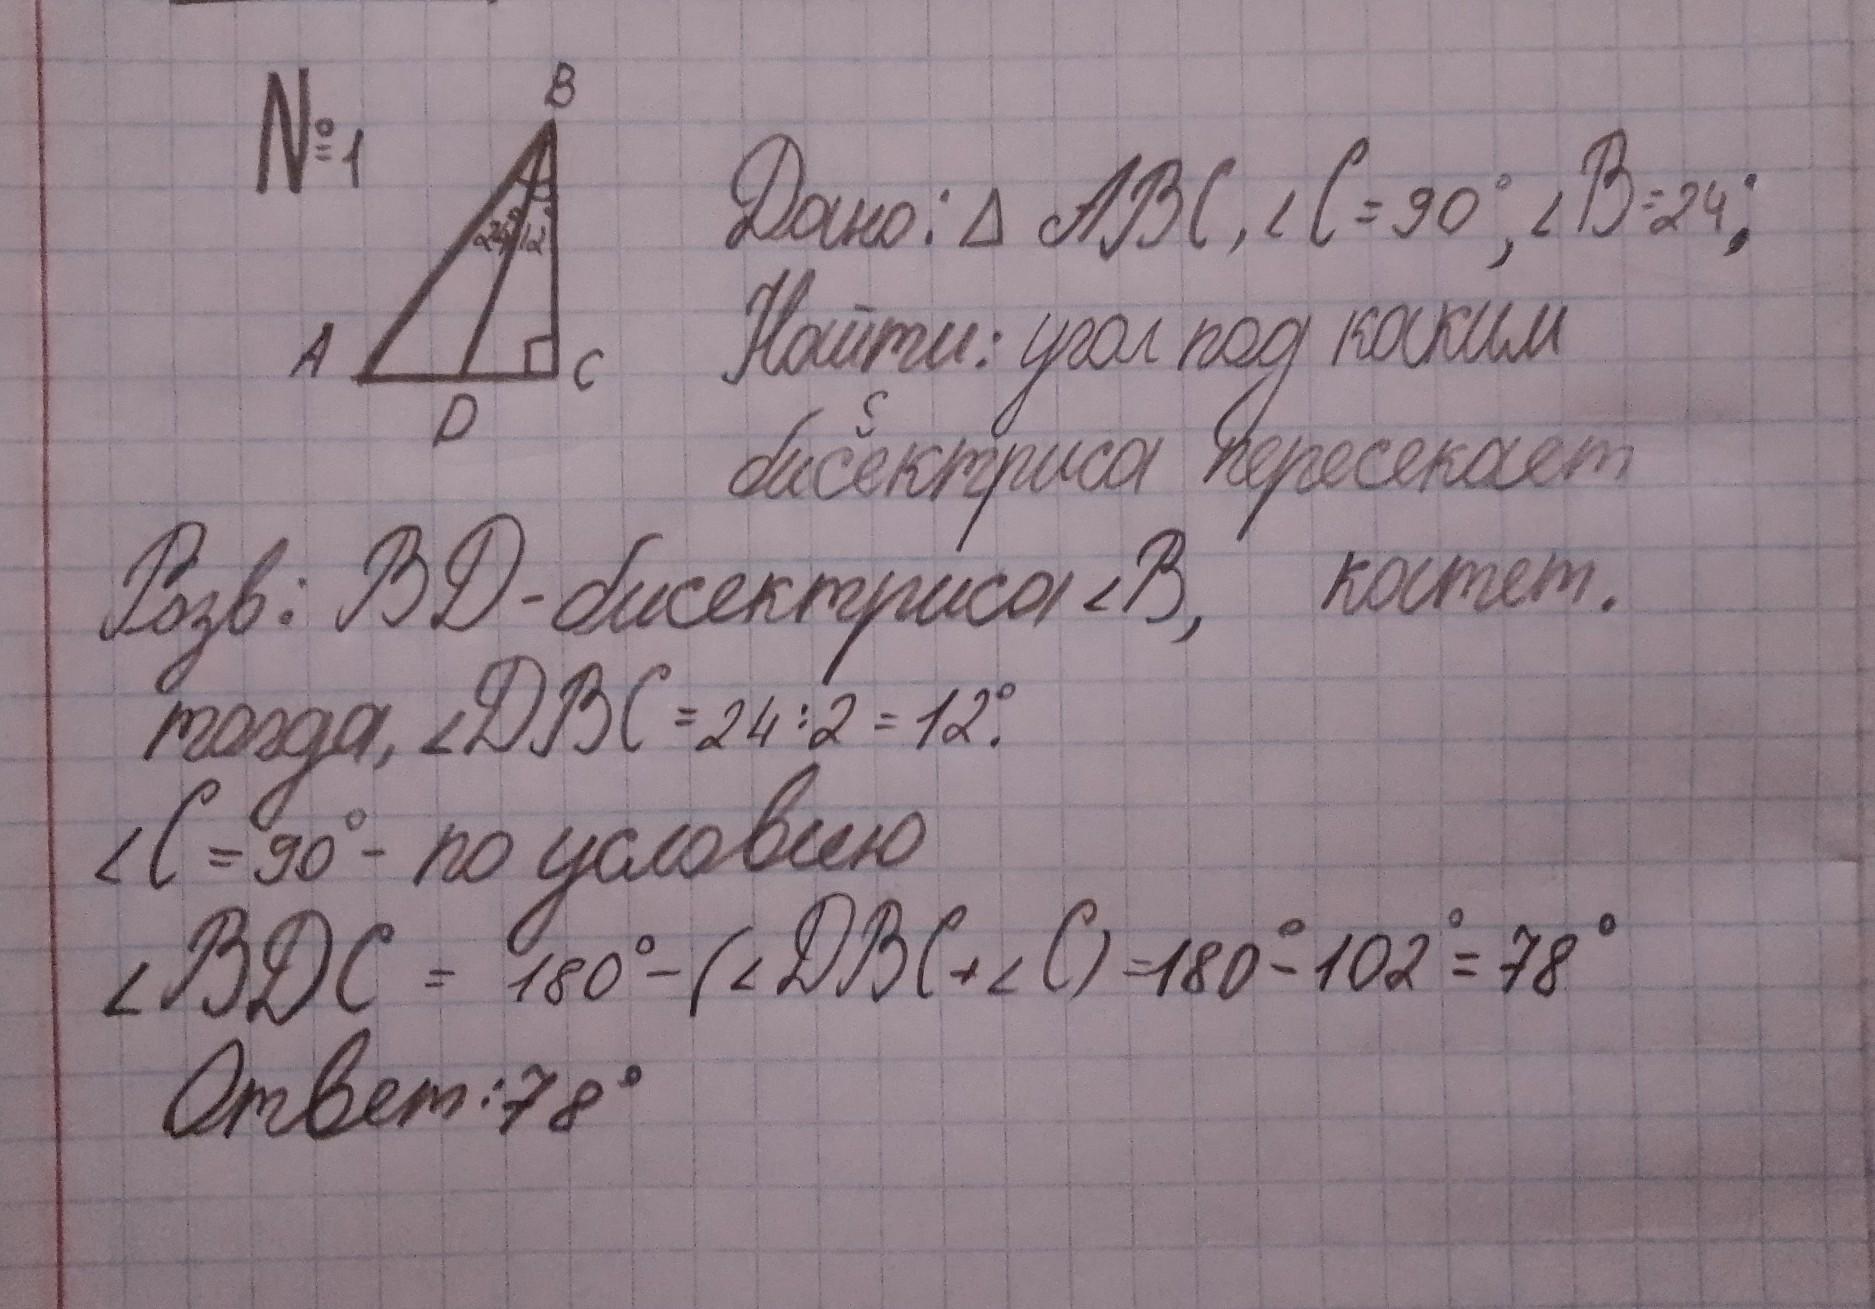 №1
B
24° 12°
A
D
C
Дано: △ ABC, ∠C=90°, ∠B=24°;
Найти: угол под каким
с
бисектриса пересекает
катет.
Розв: BD-бисектриса ∠B,
тогда, ∠DBC=24:2=12°.
∠C=90°- по условию
∠BDC = 180°-(∠DBC+∠C)=180°-102°=78°
Ответ:78°